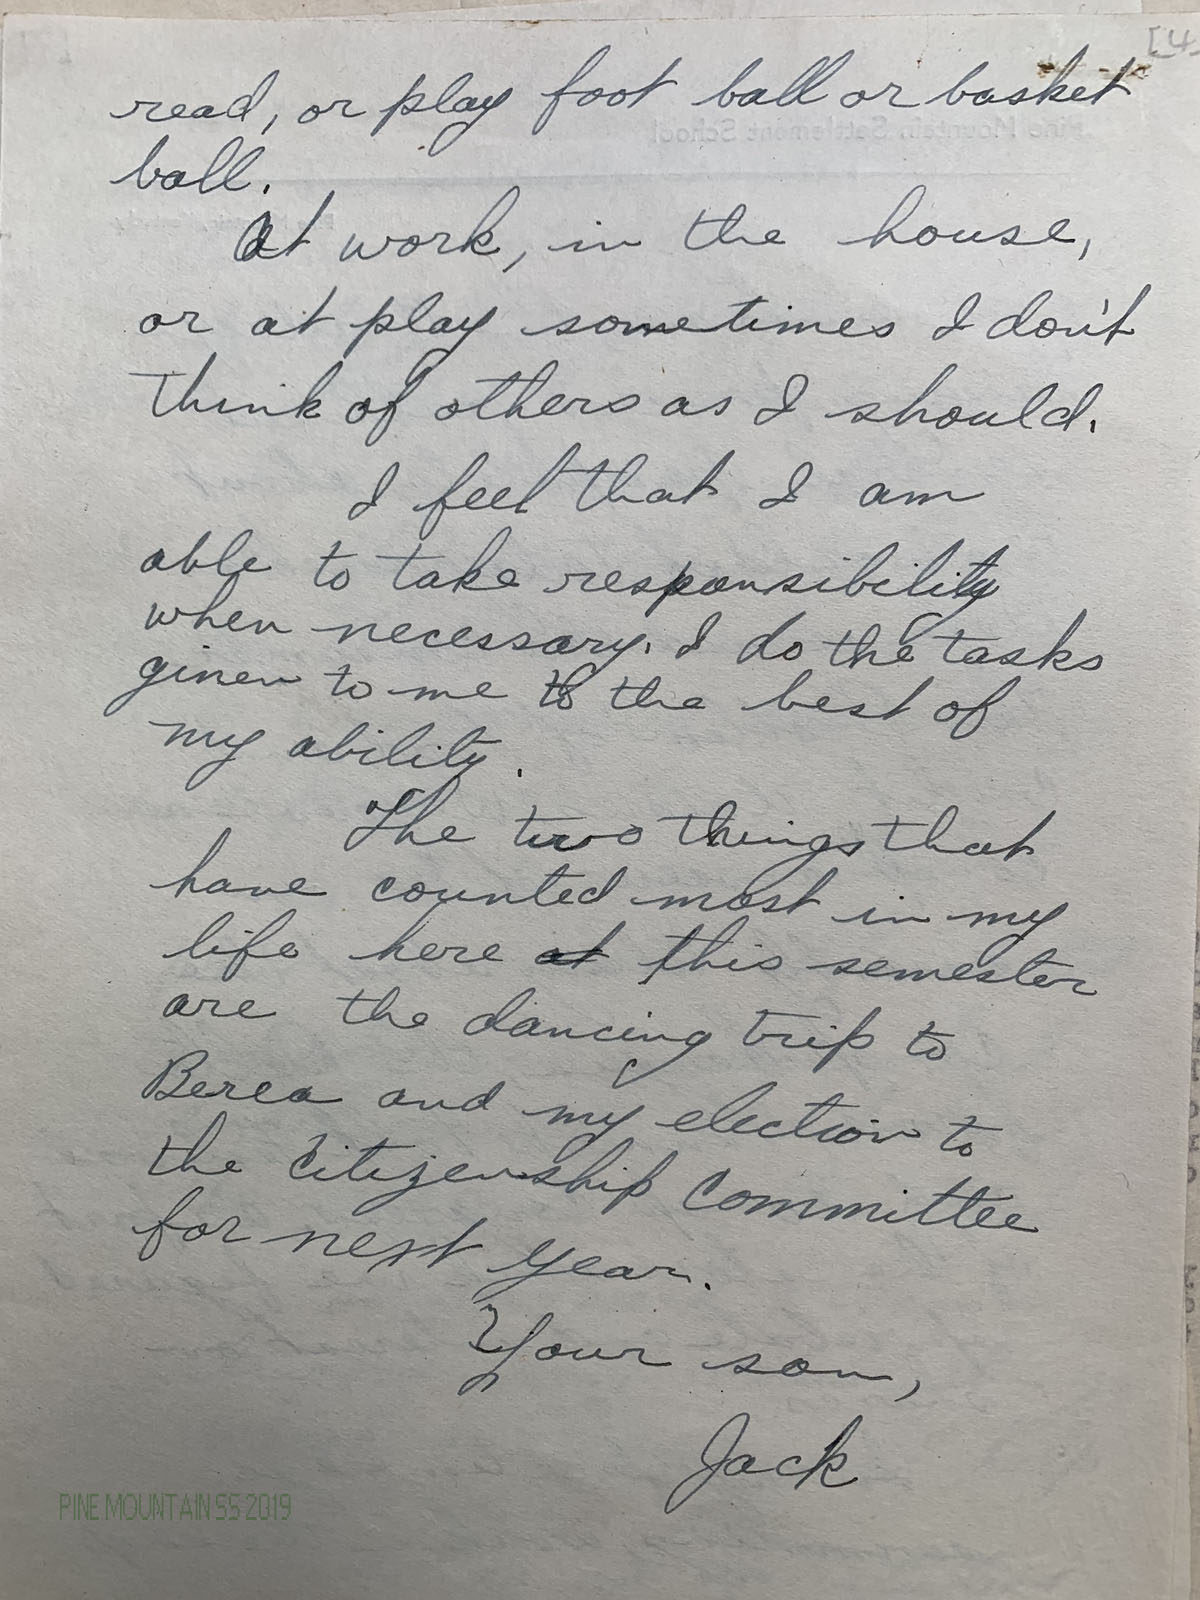 [4
read, or play foot ball or basket
ball.
At work, in the house,
or at play sometimes I don't
think of others as I should.
I feel that I am
able to take responsibility
when necessary. I do the tasks
given to me to the best of
my ability.
The two things that
have counted most in my
life here at this semester
are the dancing trip to
Berea and my election to
the Citizenship Committee
for next year.
Your son,
Jack
PINE MOUNTAIN SS 2019
Pine Mountain Settlement School